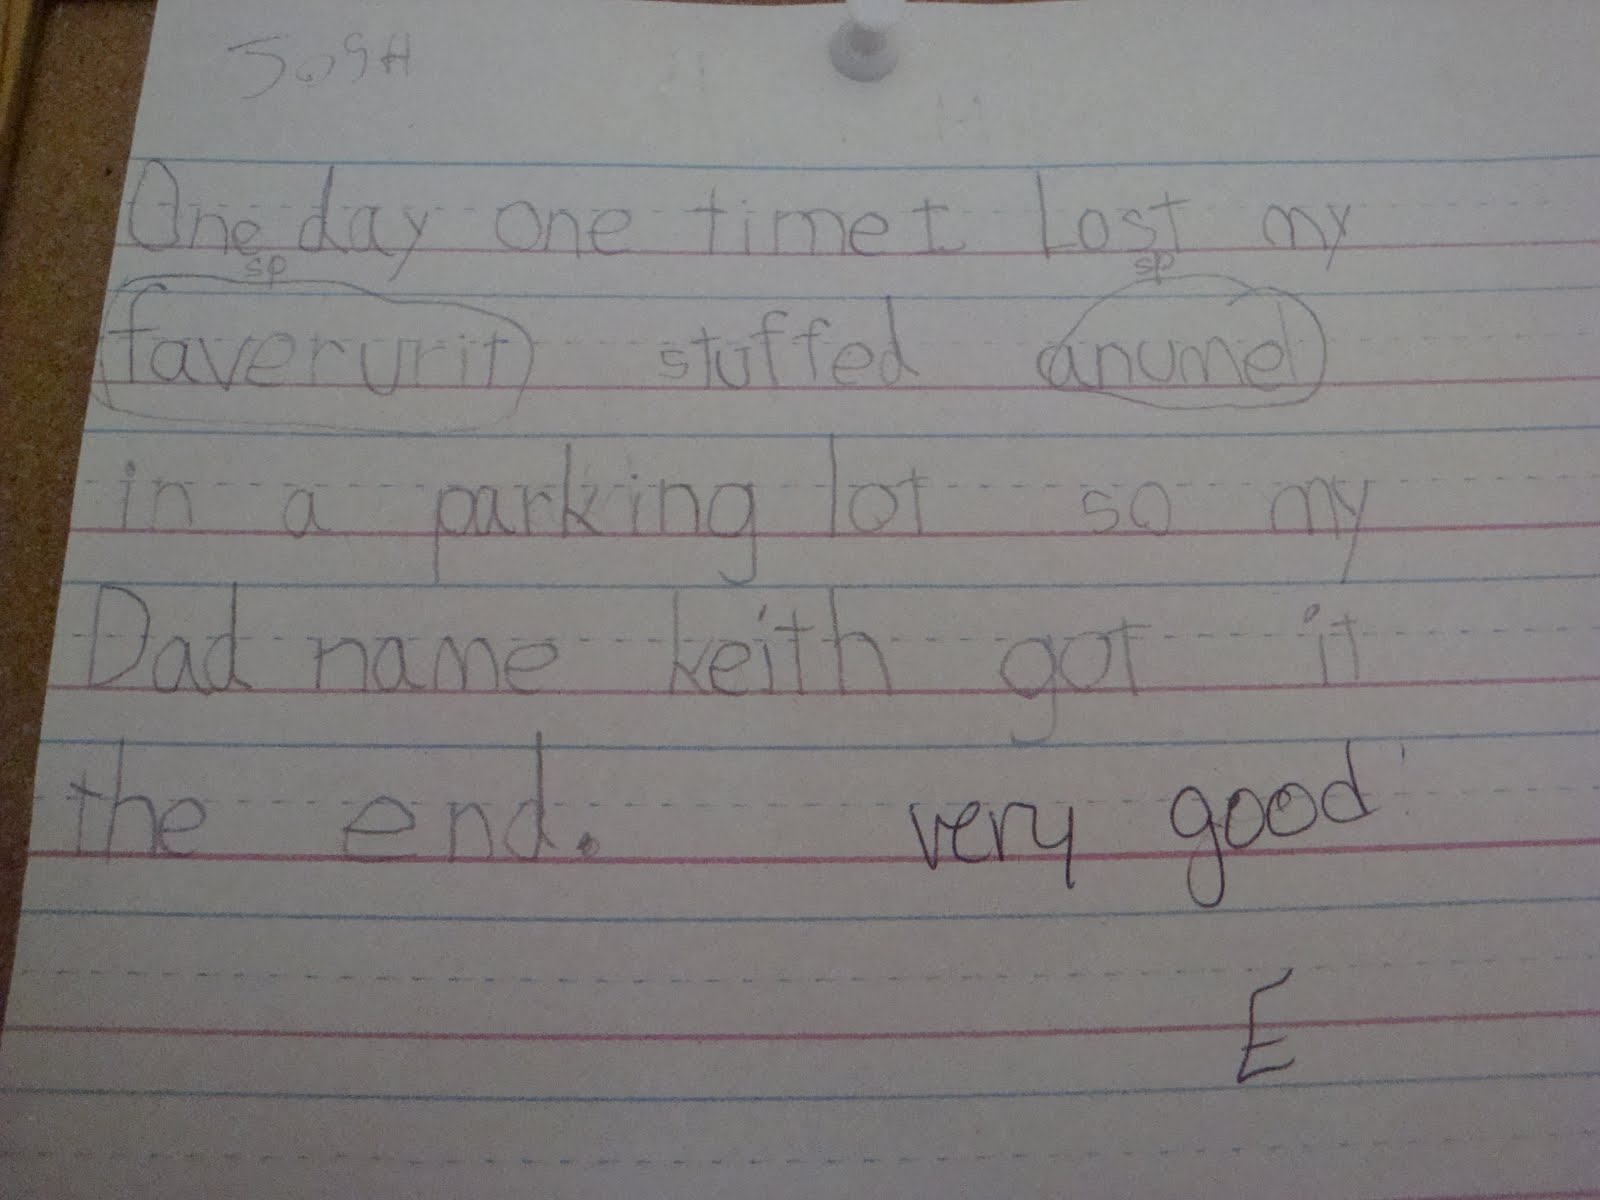 JOSH
One day one time I Lost my
sp sp
faverurit stuffed anumel
in a parking lot so my
Dad name keith got it
the end. very good!
E